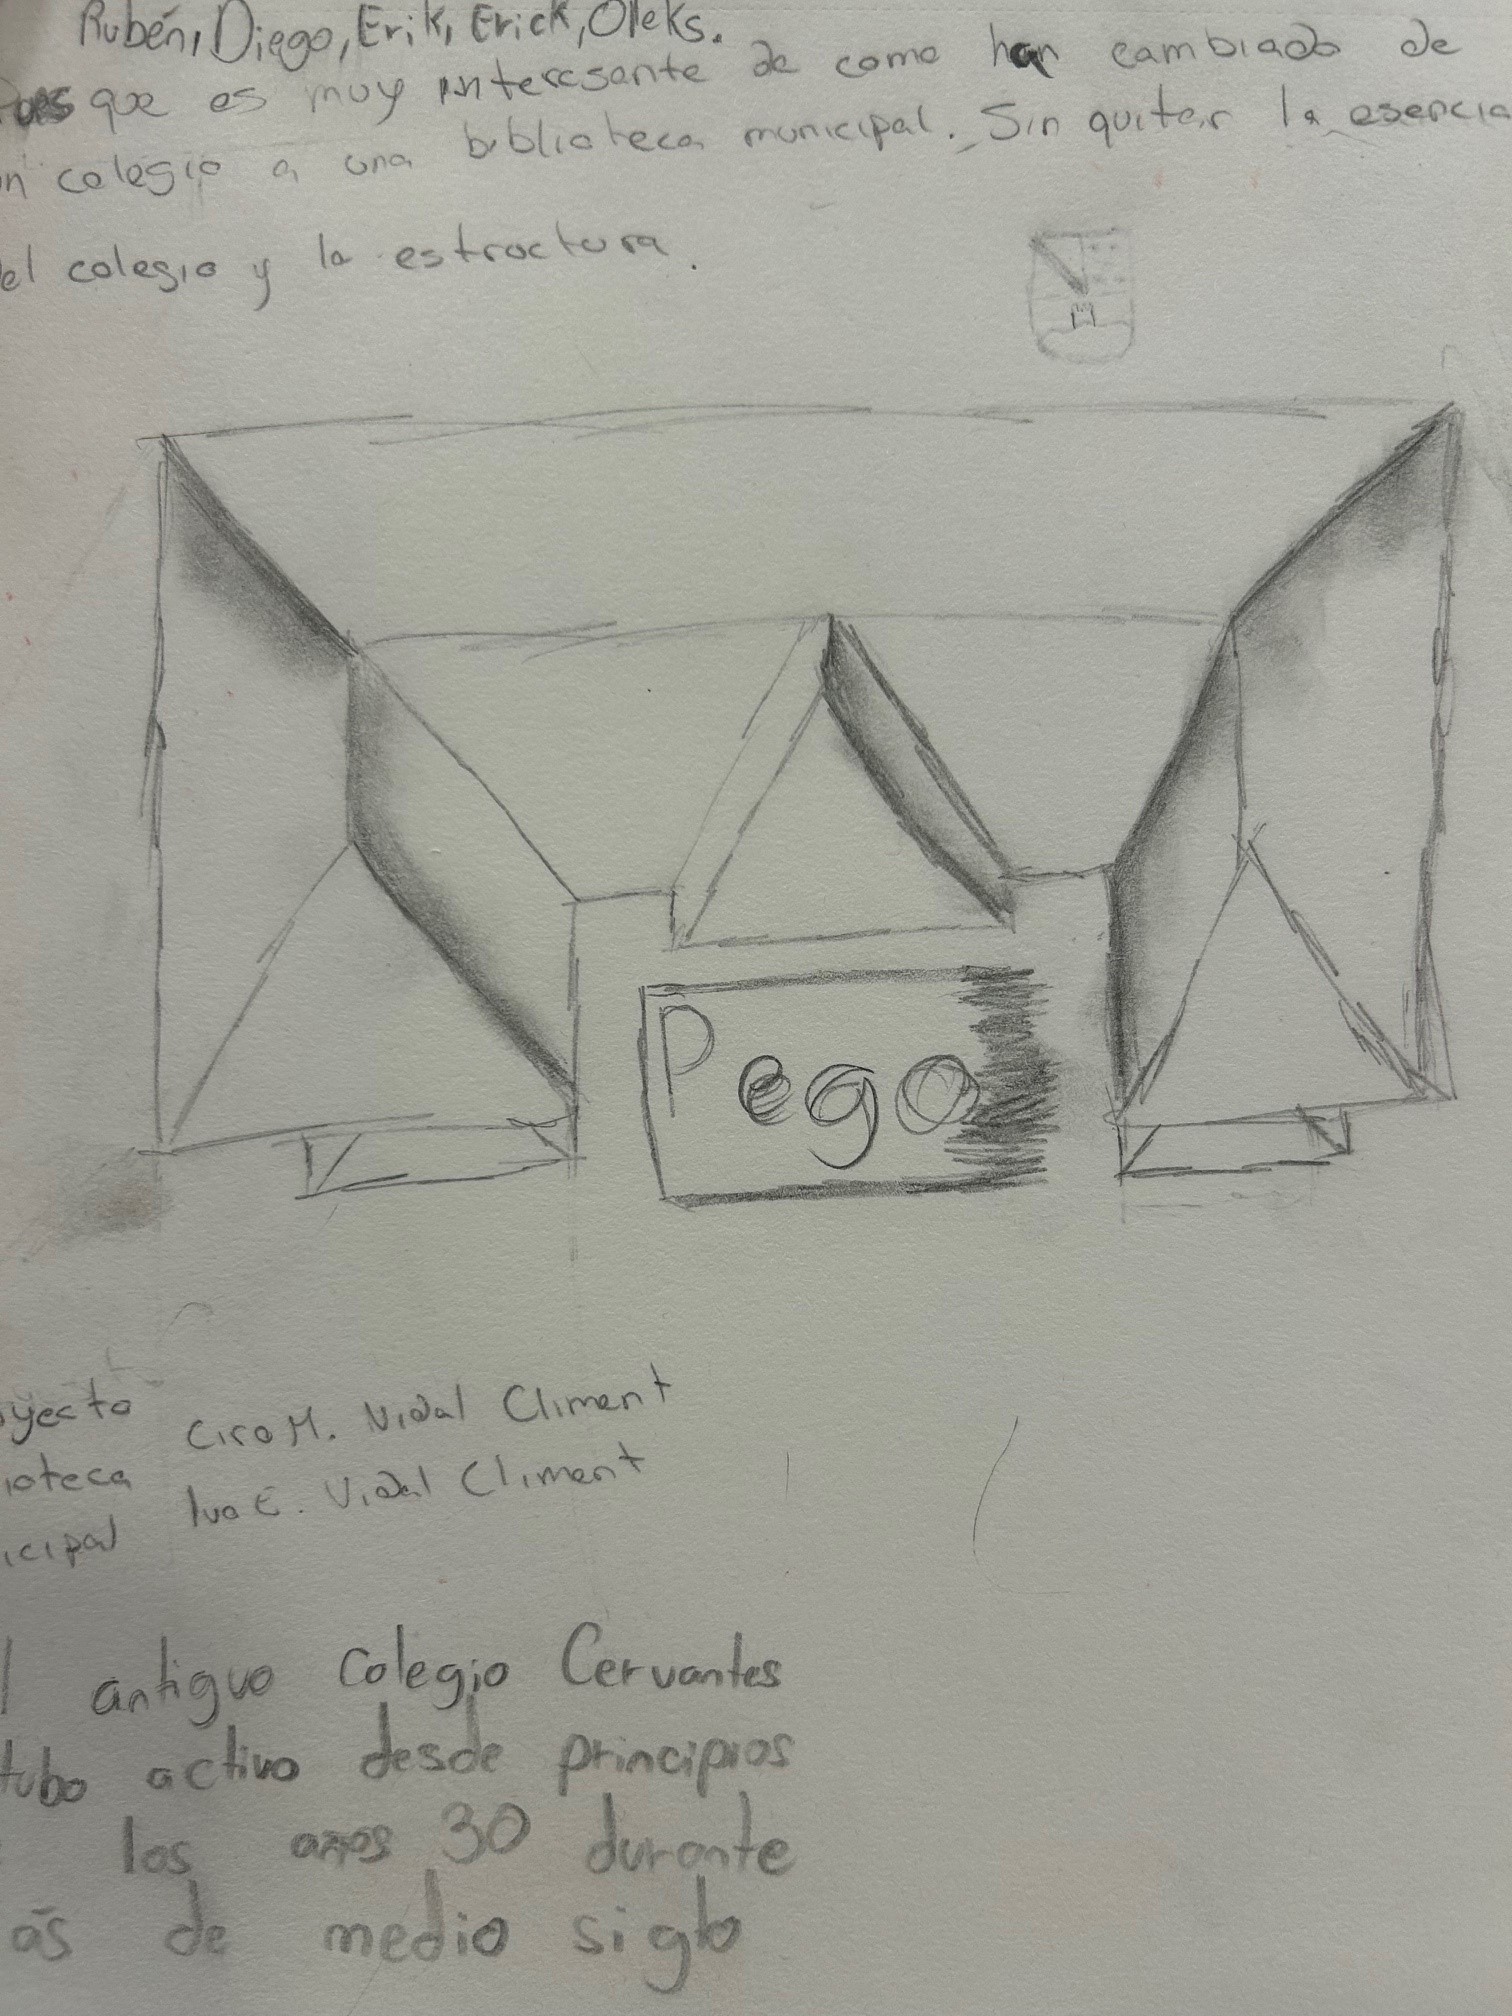 Rubén, Diego, Erik, Erick, Oleks.
Pues que es muy interesante de como han cambiado de
un colegio a una biblioteca municipal. Sin quitar la esencia
el colegio y la estructura.
Pego
oyecto
ioteca
icipal
Ciro M. Vidal Climent
Ivo E. Vidal Climent
l antiguo Colegio Cervantes
tubo activo desde principios
los años 30 durante
ás de medio siglo